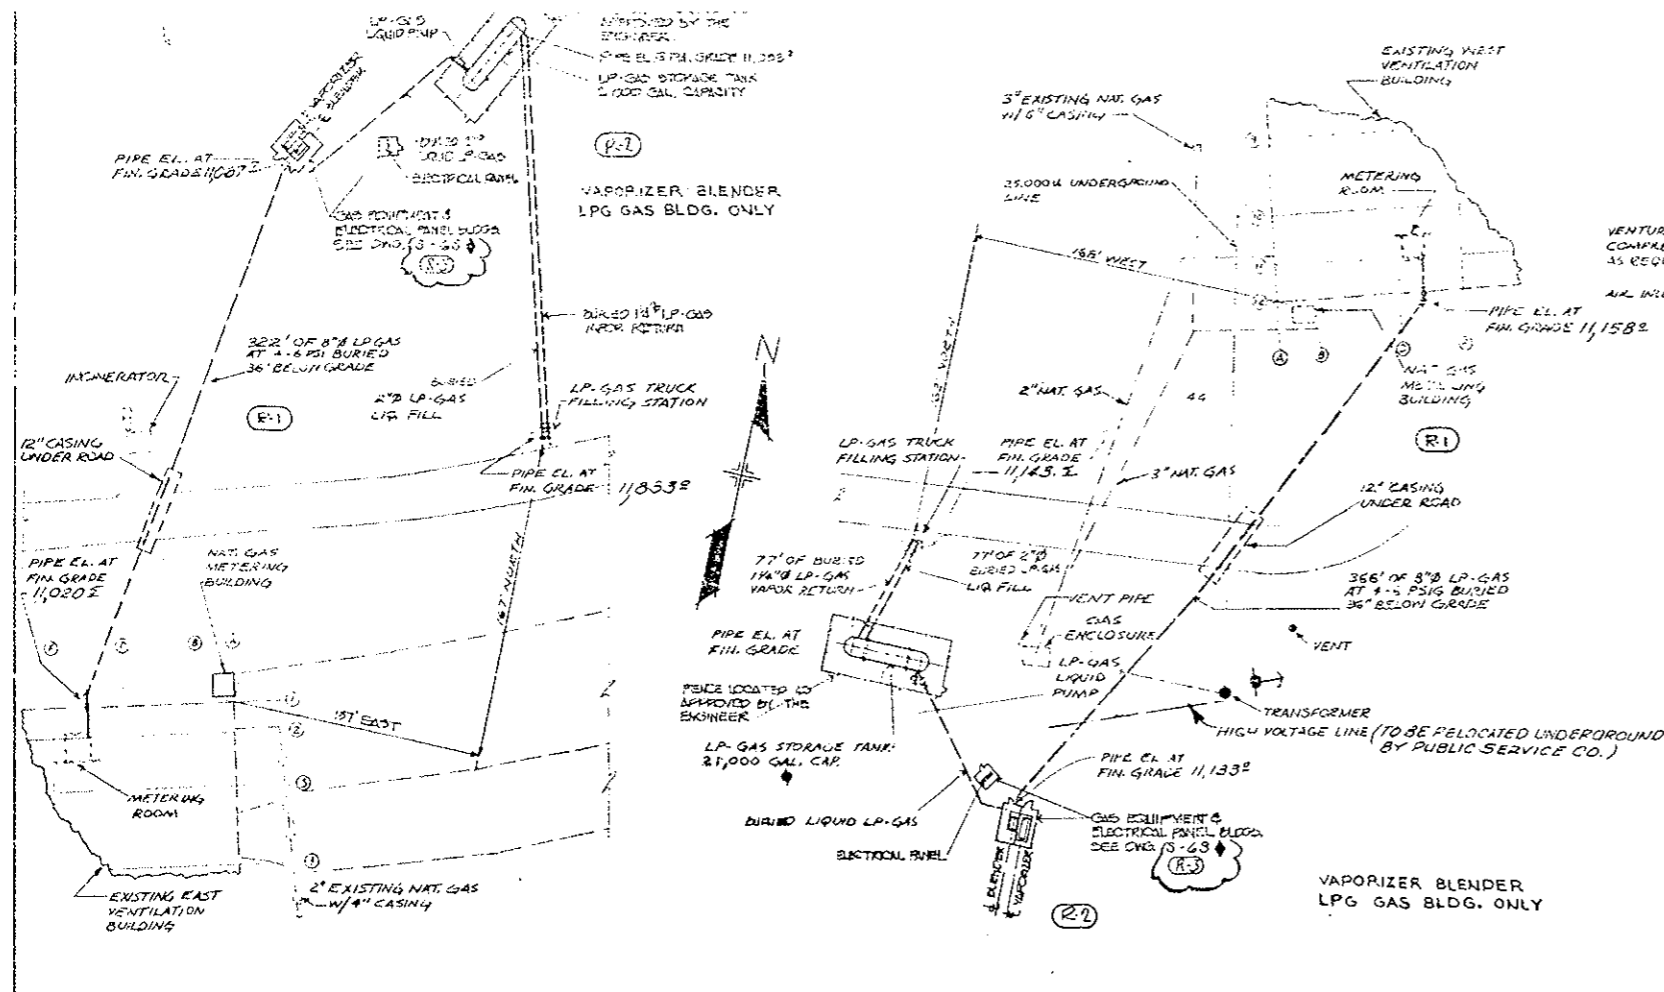 LP-GAS
LIQUID PUMP
APPROVED BY THE
ENGINEER
LP-GAS STORAGE TANK
GAL. CAPACITY
VAPORIZER
BLENDER
PIPE EL. AT
FIN. GRADE
ELECTRICAL PANEL
R-2
VAPORIZER BLENDER
LPG GAS BLDG. ONLY
GAS EQUIPMENT &
ELECTRICAL PANEL BLDGS.
SEE DWG. S-63
R-3
BURIED 1¼"Ø LP-GAS
VAPOR RETURN
322' OF 8"Ø LP GAS
AT 4-6 PSI BURIED
36" BELOW GRADE
INCINERATOR
BURIED
2"Ø LP-GAS
LIQ. FILL
LP-GAS TRUCK
FILLING STATION
R-1
12" CASING
UNDER ROAD
PIPE EL. AT
FIN. GRADE
PIPE EL. AT
FIN. GRADE
NAT. GAS
METERING
BUILDING
NORTH
157' EAST
METERING
ROOM
EXISTING EAST
VENTILATION
BUILDING
2" EXISTING NAT. GAS
W/4" CASING
N
EXISTING WEST
VENTILATION
BUILDING
3" EXISTING NAT. GAS
W/6" CASING
METERING
ROOM
UNDERGROUND
LINE
168' WEST
NORTH
AIR
PIPE EL. AT
FIN. GRADE 11,158
A
B
NAT. GAS
METERING
BUILDING
2" NAT. GAS
44
R-1
LP-GAS TRUCK
FILLING STATION
PIPE EL. AT
FIN. GRADE
3" NAT. GAS
12" CASING
UNDER ROAD
77' OF BURIED
1¼"Ø LP-GAS
VAPOR RETURN
77' OF 2"Ø
BURIED LP-GAS
LIQ FILL
366' OF 8"Ø LP-GAS
AT 4-6 PSIG BURIED
36" BELOW GRADE
VENT PIPE
GAS
ENCLOSURE
VENT
PIPE EL. AT
FIN. GRADE
LP-GAS
LIQUID
PUMP
FENCE LOCATED AS
APPROVED BY THE
ENGINEER
TRANSFORMER
HIGH VOLTAGE LINE (TO BE RELOCATED UNDERGROUND
BY PUBLIC SERVICE CO.)
LP-GAS STORAGE TANK
GAL. CAP.
PIPE EL AT
FIN. GRADE 11,133
BURIED LIQUID LP-GAS
GAS EQUIPMENT &
ELECTRICAL PANEL BLDGS.
SEE DWG. S-63
R-3
ELECTRICAL PANEL
BLENDER
VAPORIZER
R-2
VAPORIZER BLENDER
LPG GAS BLDG. ONLY